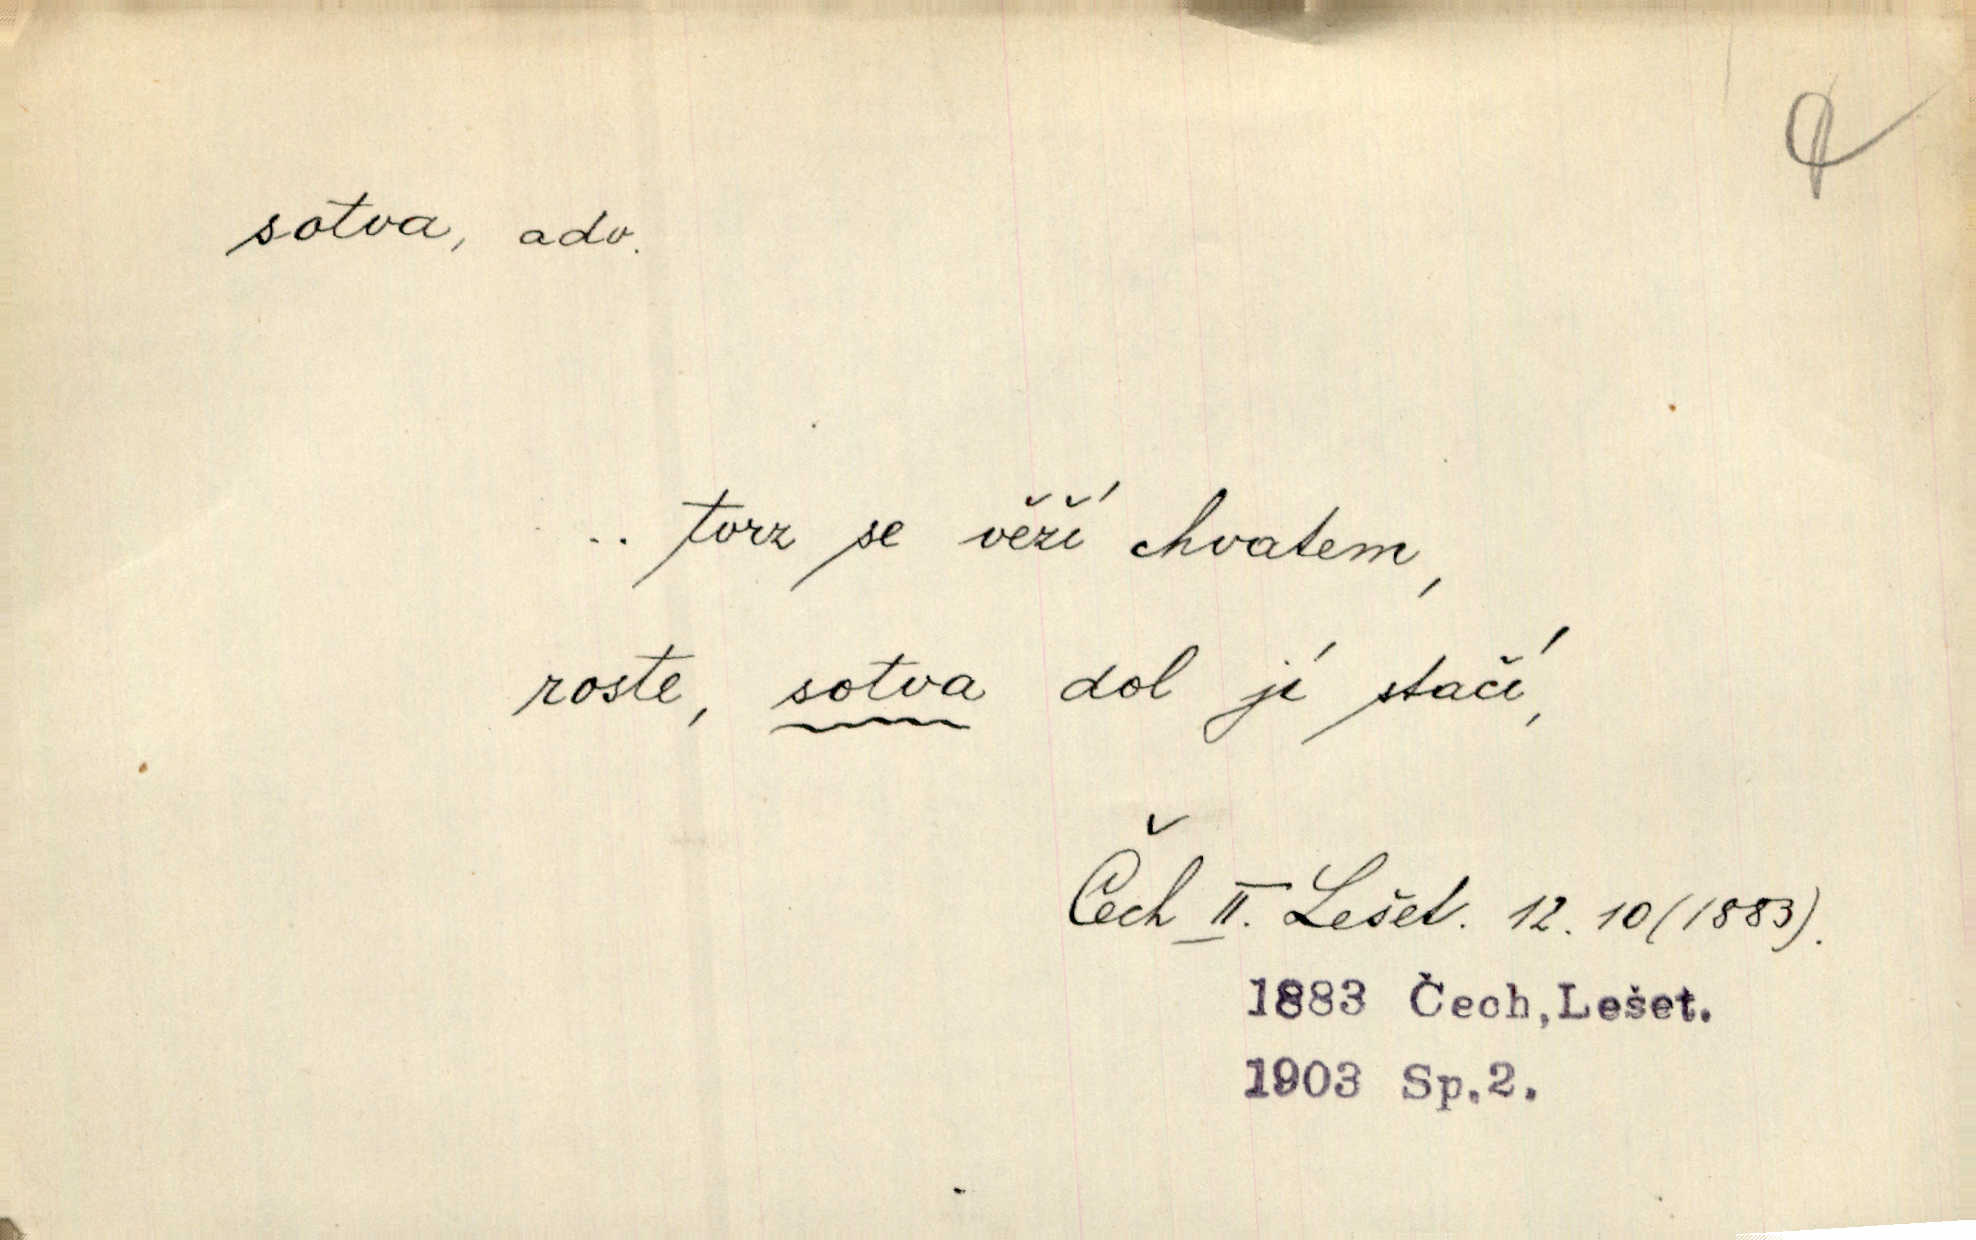 sotva, adv.
.. tvrz se věží chvatem,
roste, sotva dol jí stačí,
Čech II. Lešet. 12. 10 (1883).
1883 Čech, Lešet.
1903 Sp. 2.